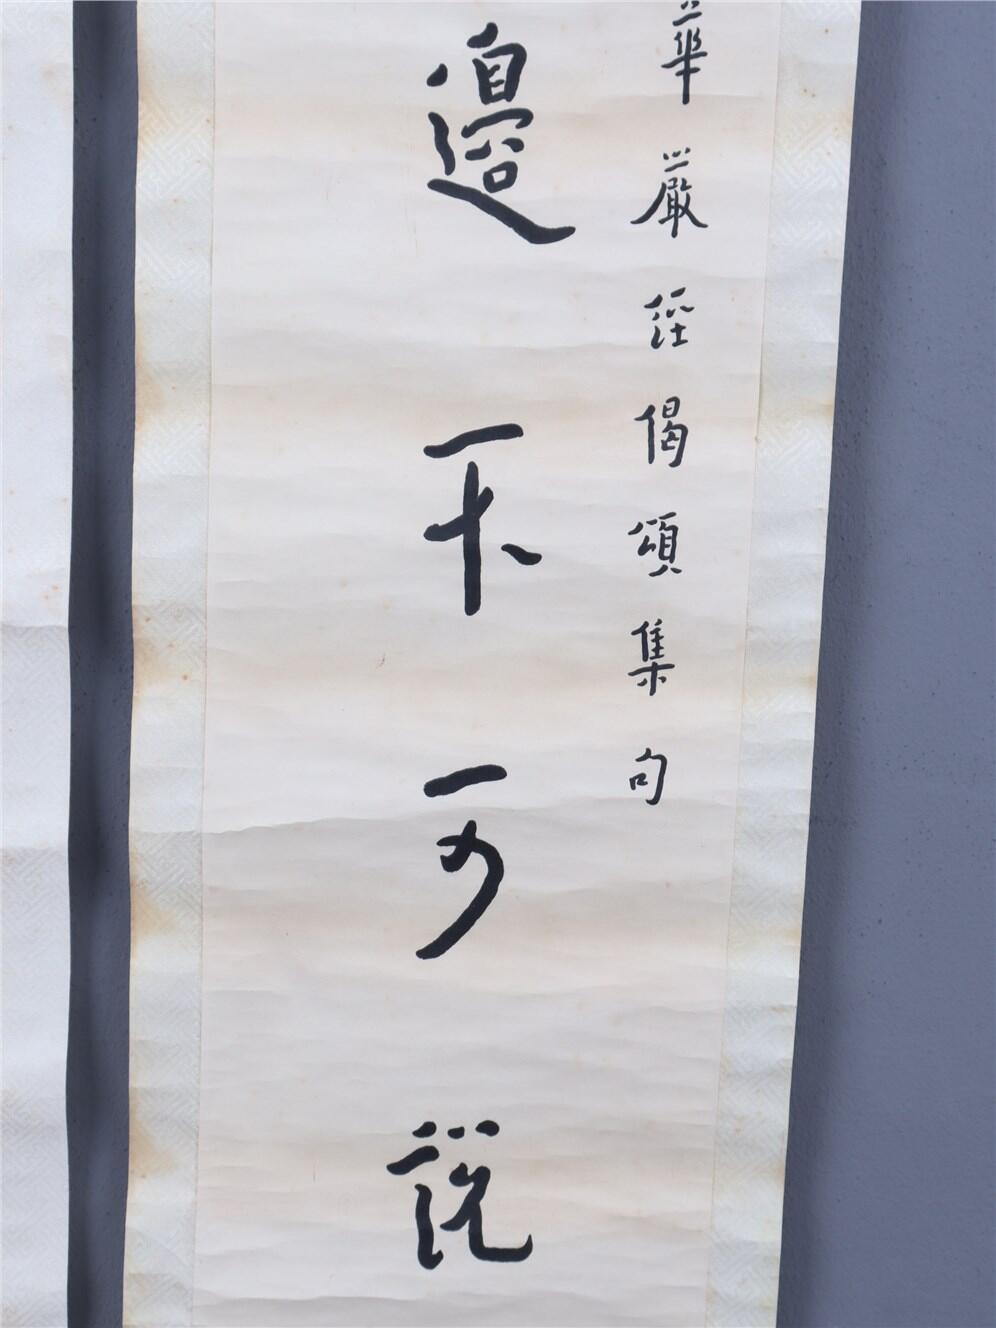 華嚴經偈頌集句
邊不可說